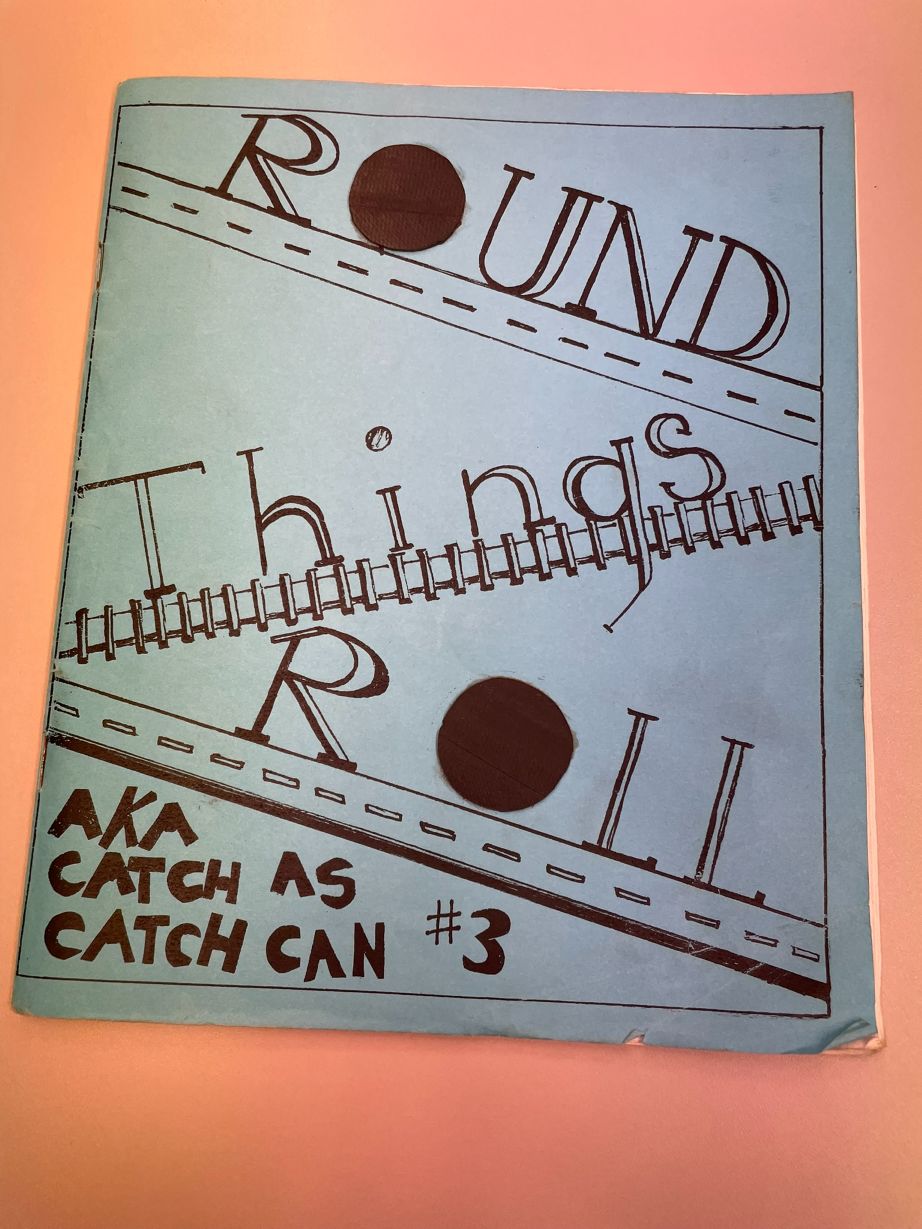 ROUND
Things
Roll
AKA
CATCH AS
CATCH CAN #3